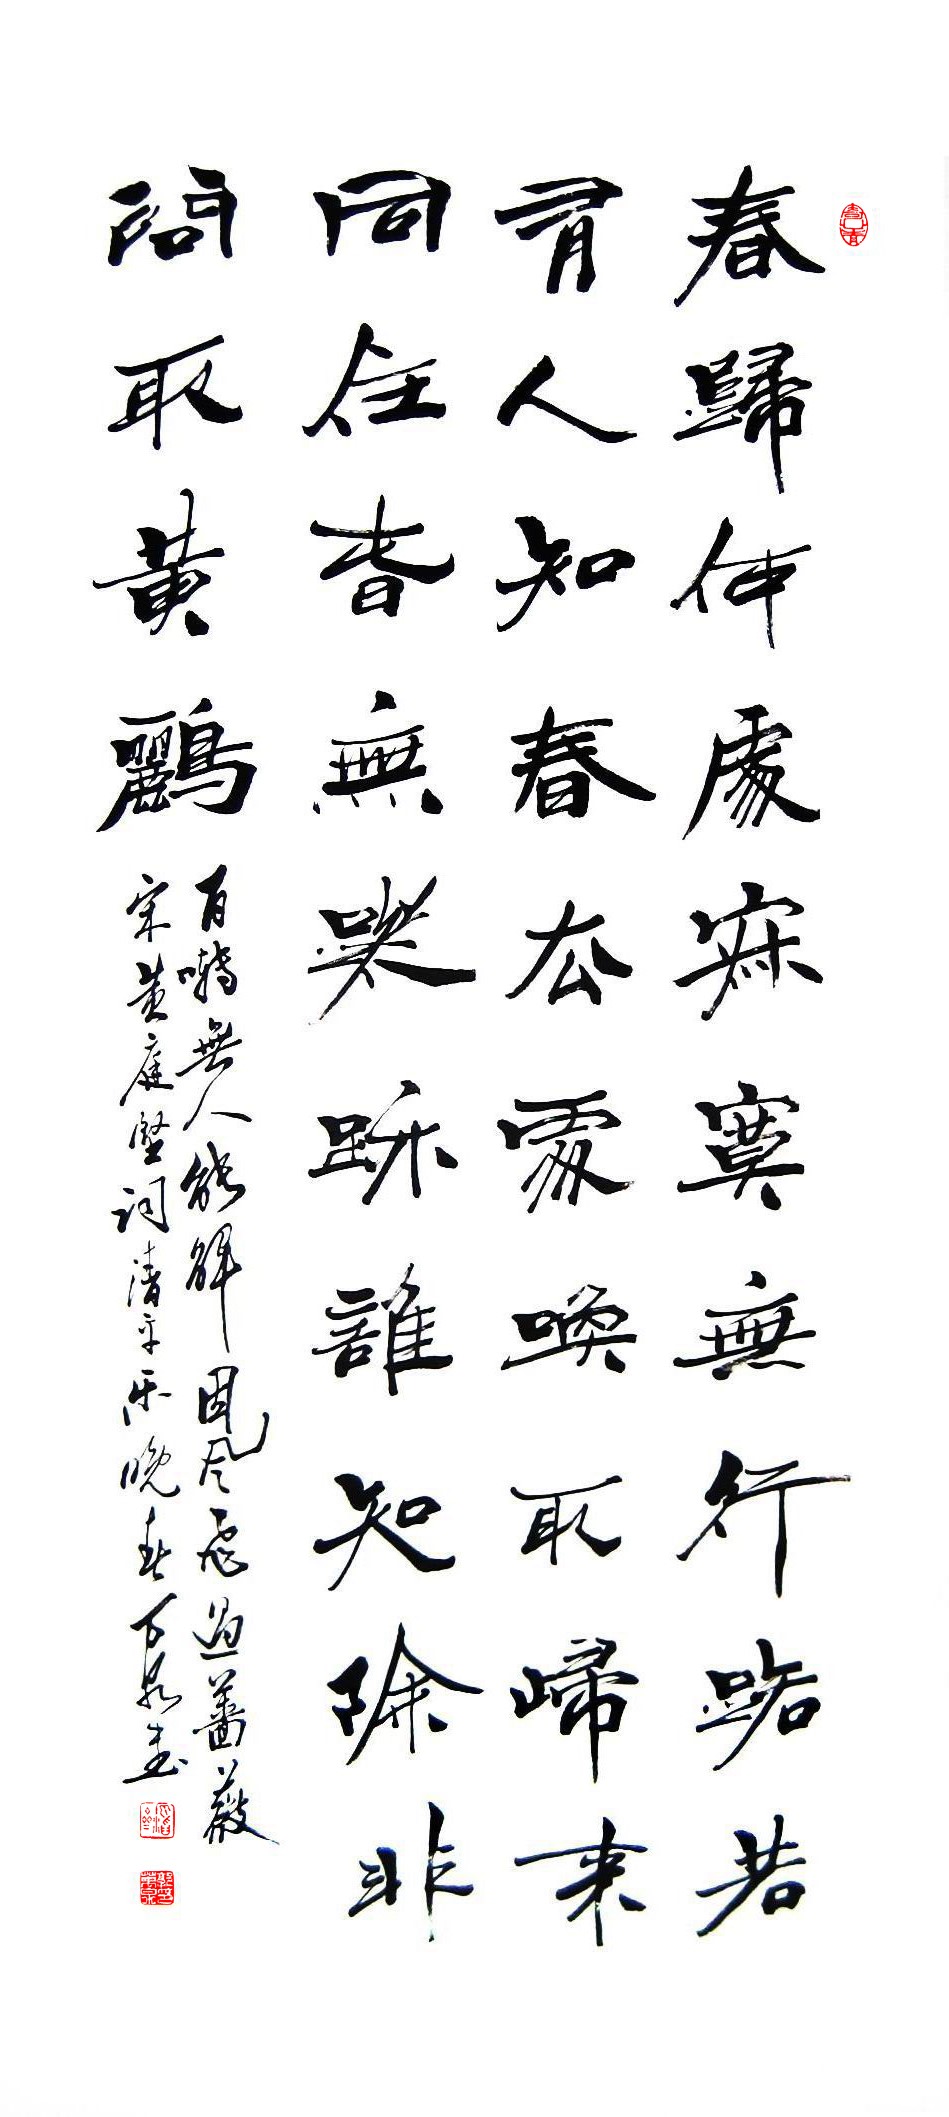 春歸何處寂寞無行路若
有人知春去處喚取歸來
同住春無蹤跡誰知除非
問取黄鸝
百囀無人能解因風飛過薔薇
宋黄庭堅詞清平乐晚春万泉書